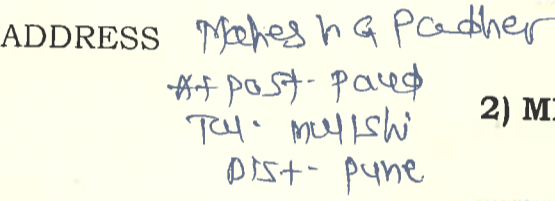 ADDRESS Mahesh G Padher
At post- paud
2) MI
Tal. mulshi
Dist- pune